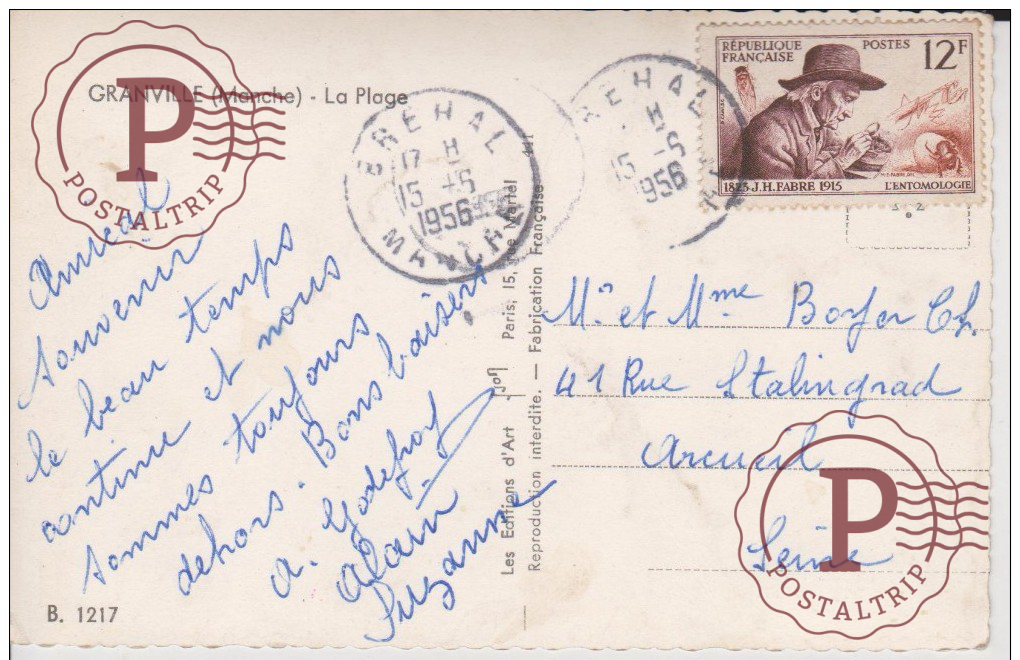 GRANVILLE (Manche) - La Plage
P
POSTALTRIP
BREHAL
17 H
15 -5
1956
MANCHE
BREHAL
H
15 -5
1956
RÉPUBLIQUE FRANÇAISE
POSTES
12F
1823 J.H. FABRE 1915
L'ENTOMOLOGIE
Amical
souvenir
le beau temps
continue et nous
sommes toujours
dehors. Bons baisers
A. Godefroy
Alain
Suzanne
B. 1217
Les Editions d'Art Paris, 15, rue Martel
Reproduction interdite. — Fabrication Française
Mr et Mme Boyer Ch.
41 Rue Stalingrad
Arcueil
Seine
P
POSTALTRIP